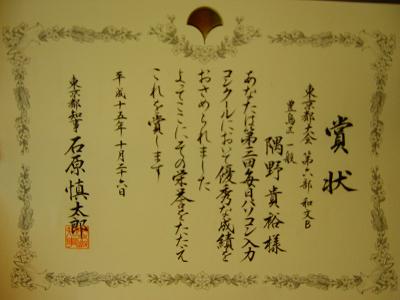 賞状
東京都大会 第六部 和文B
豊島区 一般
隅野貴裕様
あなたは第三回毎日パソコン入力
コンクールにおいて優秀な成績を
おさめられました
よってここにその栄誉をたたえ
これを賞します
平成十五年十月二十六日
東京都知事 石原慎太郎